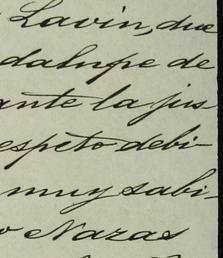 Lavin, due
dalupe de
ante la jus
espeto debi-
muy sabi-
o Nazas